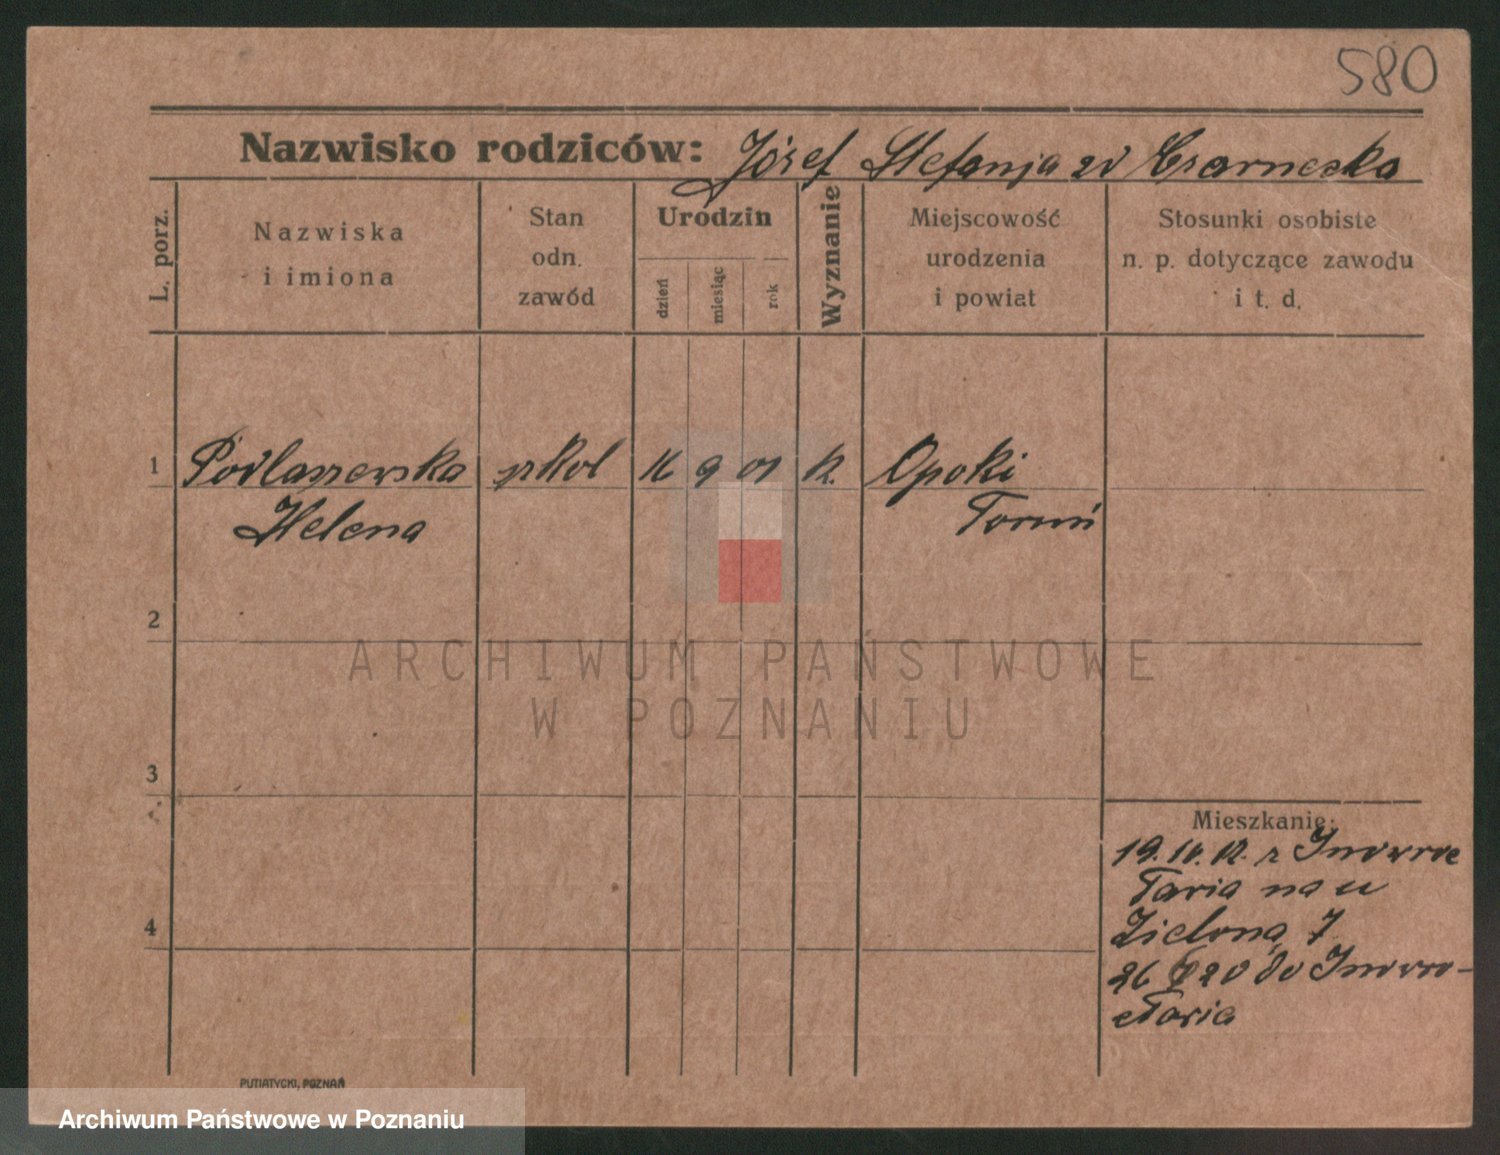 580
Nazwisko rodziców: Józef Stefanja zd Czarnecka
L. porz.
Nazwiska
i imiona
Stan
odn.
zawód
Urodzin
dzień
miesiąc
rok
Wyznanie
Miejscowość
urodzenia
i powiat
Stosunki osobiste
n. p. dotyczące zawodu
i t. d.
1 Podlaszewska szkol 16 9 01 K. Opoki
Helena Toruń
2
ARCHIWUM PAŃSTWOWE
W POZNANIU
3
4
Mieszkanie:
19. 10. z Inowroc
ławia na u
Zieloną 7
26 20 do Inowro-
cławia
PUTIATYCKI, POZNAŃ
Archiwum Państwowe w Poznaniu